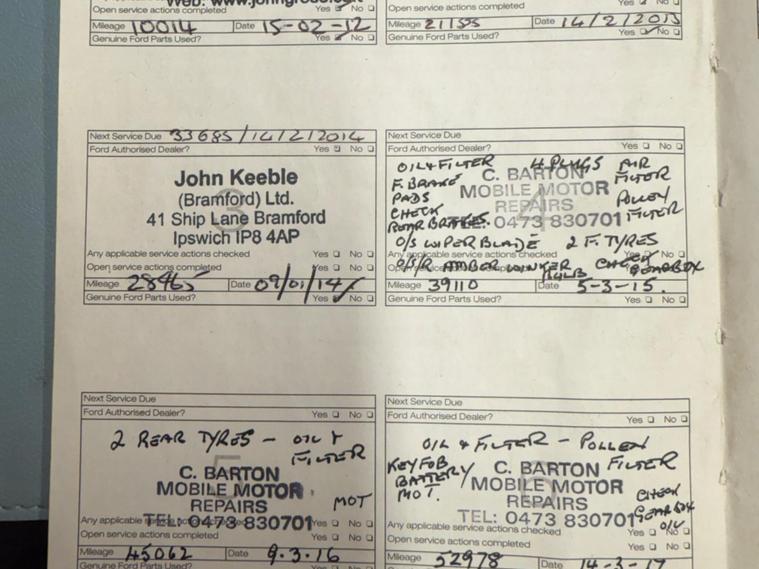 Open service actions completed Yes No
Mileage 10014 Date 15-02-12
Genuine Ford Parts Used? Yes No
Open service actions completed Yes No
Mileage 21155 Date 14/2/2013
Genuine Ford Parts Used? Yes No
Next Service Due 33685/14/2/2014
Ford Authorised Dealer? Yes No
3
John Keeble
(Bramford) Ltd.
41 Ship Lane Bramford
Ipswich IP8 4AP
Any applicable service actions checked
Open service actions completed Yes No
Mileage 28965 Date 09/01/14
Genuine Ford Parts Used? Yes No
Next Service Due
Ford Authorised Dealer? Yes No
4
OIL & FILTER 4 PLUGS AIR
F. BRAKE C. BARTON FILTER
PADS MOBILE MOTOR POLLEN
CHECK REPAIRS FILTER
REAR BRAKES. TEL: 0473 830701
O/S WIPER BLADE 2 F. TYRES
Any applicable service actions checked Yes No
O/S/R AMBER WINKER BULB CHECK GEARBOX
Mileage 39110 Date 5-3-15.
Genuine Ford Parts Used? Yes No
Next Service Due
Ford Authorised Dealer? Yes No
5
2 REAR TYRES - OIL & FILTER
C. BARTON
MOBILE MOTOR
REPAIRS MOT
TEL: 0473 830701
Any applicable service actions checked Yes No
Open service actions completed Yes No
Mileage 45062 Date 9.3.16
Next Service Due
Ford Authorised Dealer? Yes No
6
OIL & FILTER - POLLEN
KEY FOB C. BARTON FILTER
BATTERY MOBILE MOTOR
MOT. REPAIRS CHECK
TEL: 0473 830701 GEARBOX OIL
Any applicable service actions checked Yes No
Open service actions completed Yes No
Mileage 52978 Date 14-3-17